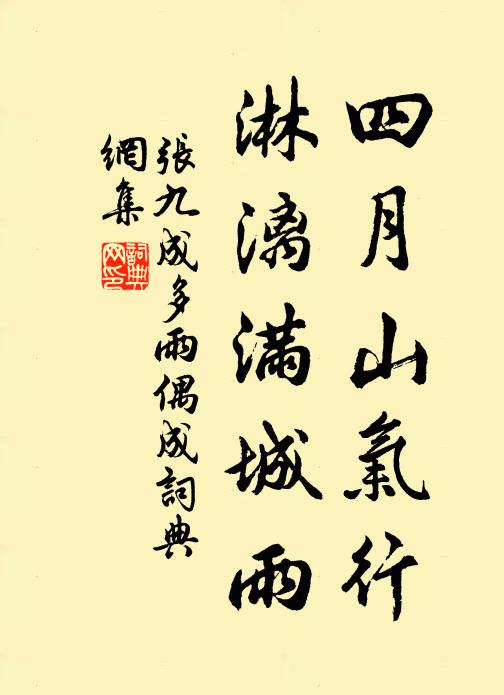 四月山氣行
淋漓滿城雨
張九成多雨偶成詞典
網集
詞典
网印